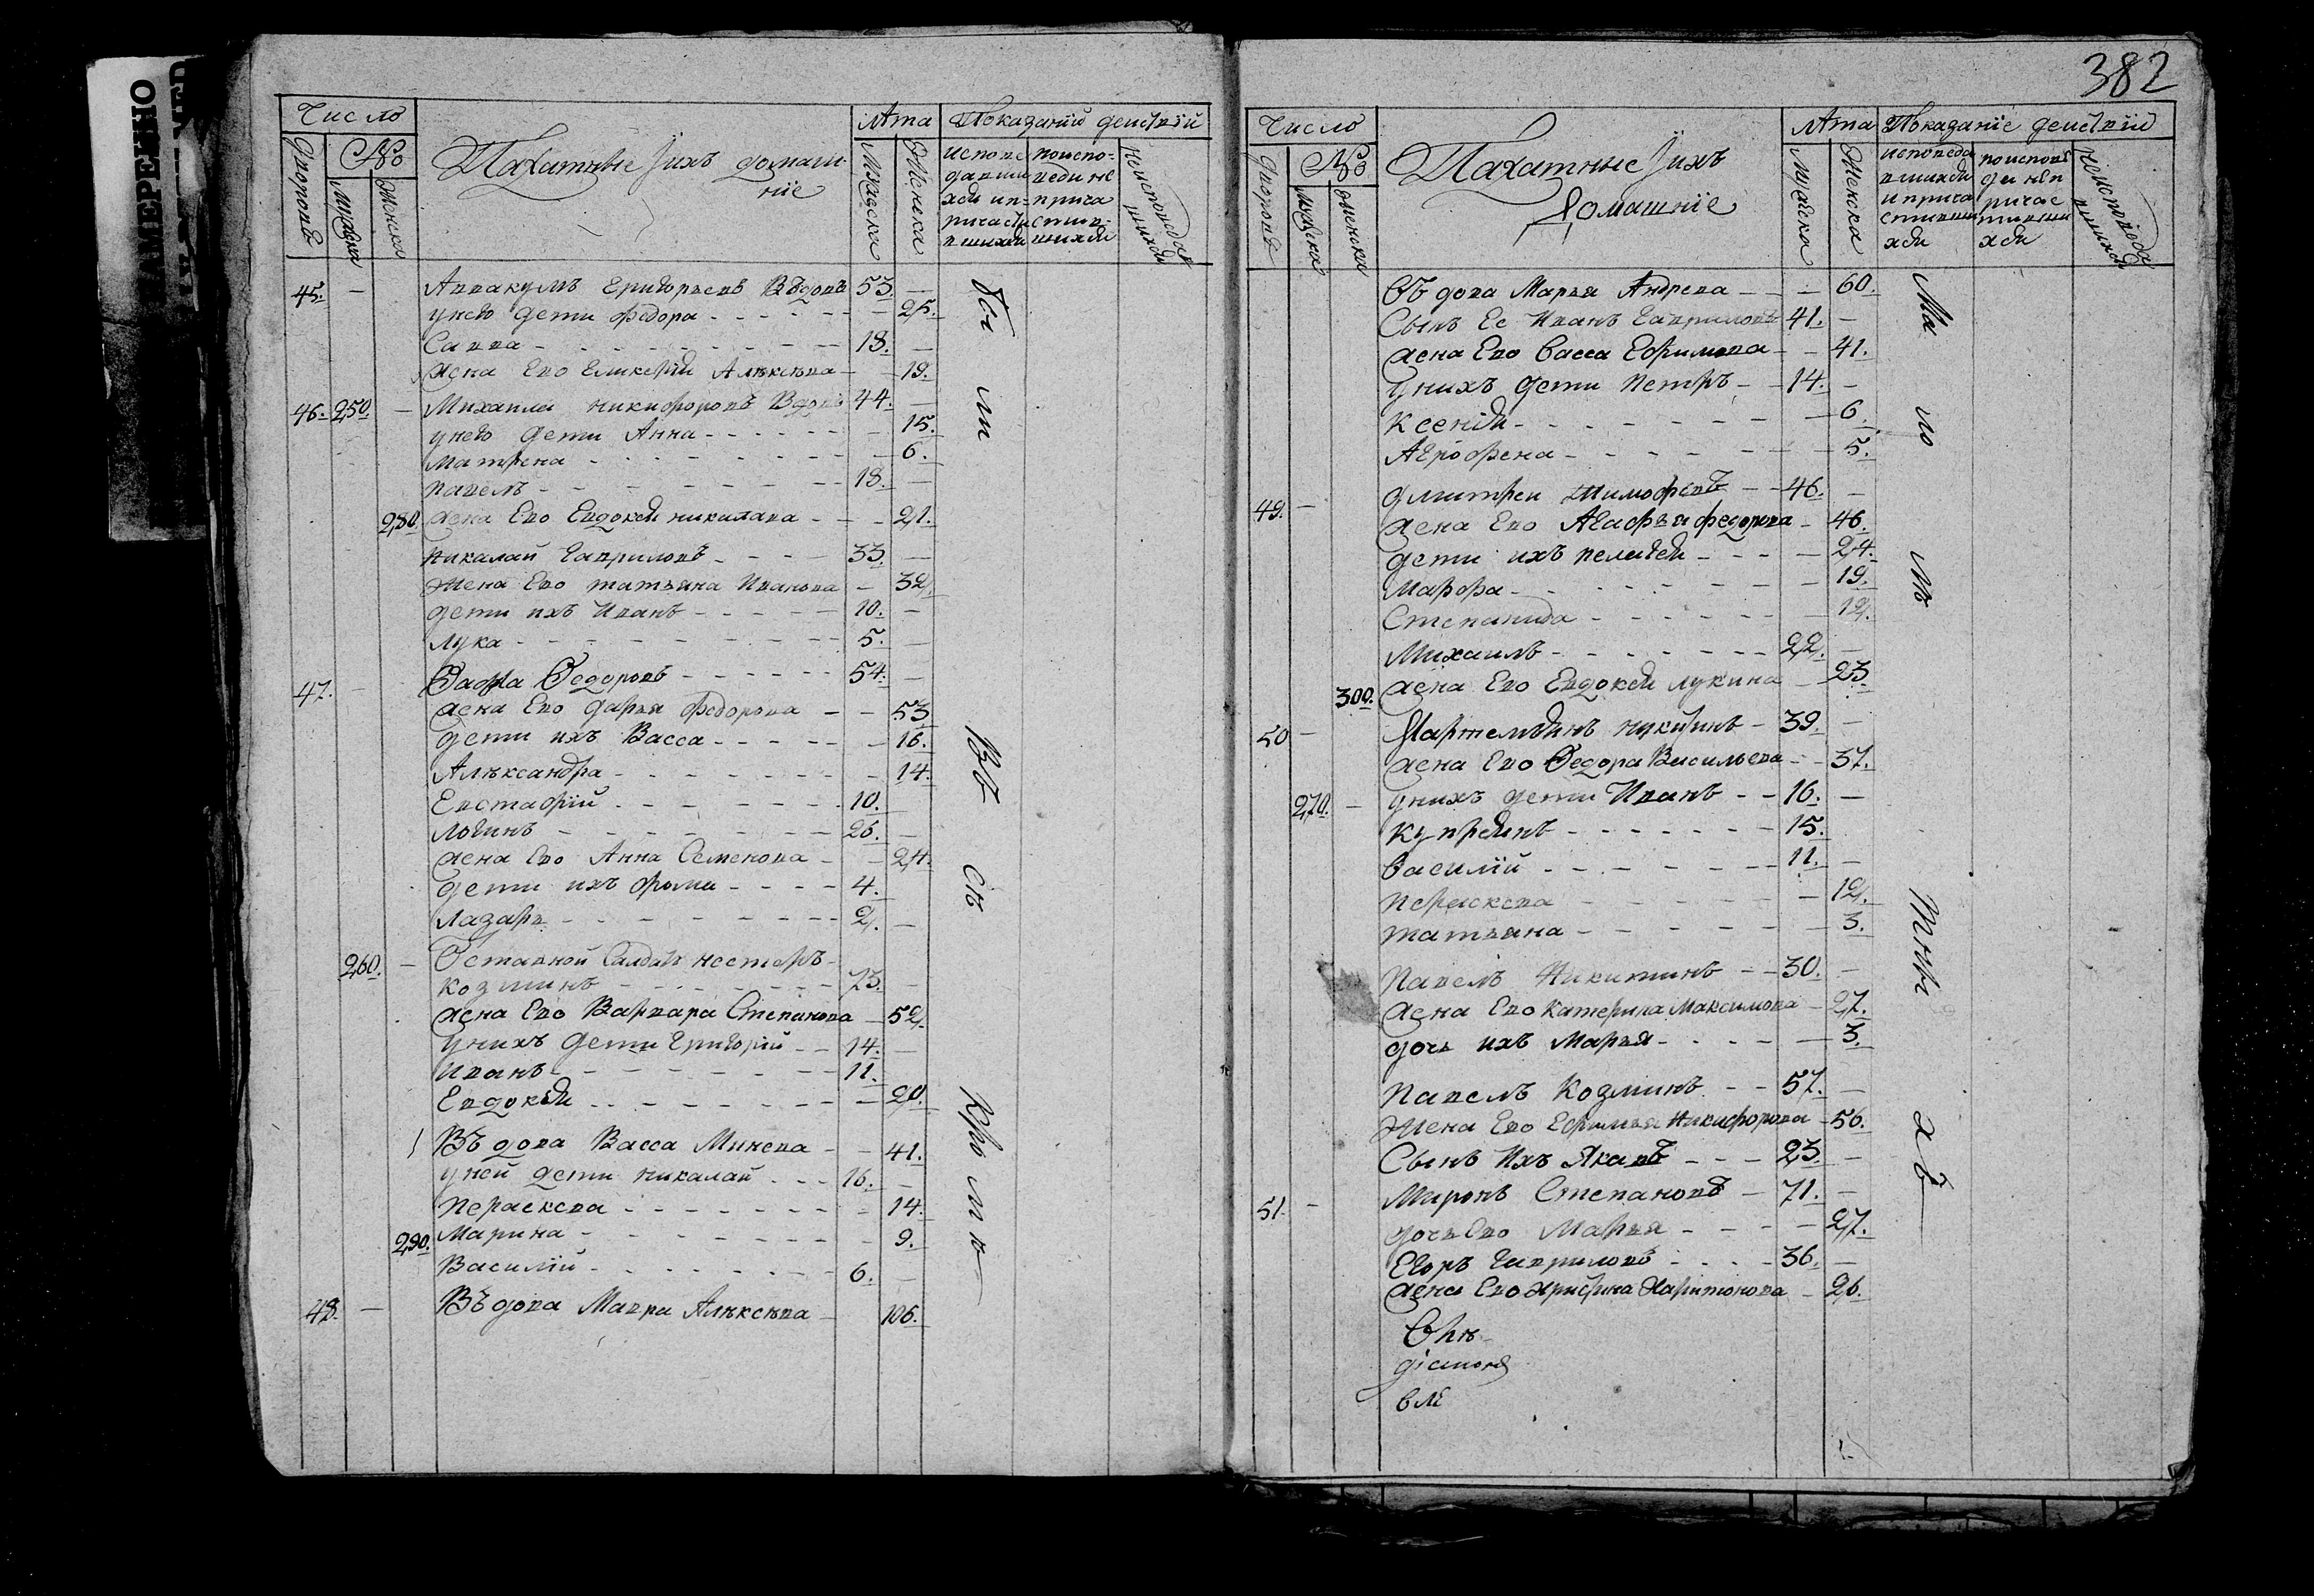 382
Число
№
Дворовъ
Мужска
Женска
Пахатные и ихъ домаш-
ніе
Лѣта
Мужска
Женска
Показаніи действій
исповедавшихся и причастившихся
по исповеди не причастившихся
не исповедавшихся
45. — Аввакумъ Григорьевъ Въдовъ 53. —
у него дети Федора — 25.
Савва 18. —
жена Ево Гликерія Алѣксѣва — 19.
46. 250. — Михаила Никифоровъ Вдовъ 44. —
у него дети Анна — 15.
Матрена — 6.
Павелъ 18. —
280. жена Ево Евдокея Николава — 21.
Никалай Гавриловъ 33. —
Жена Ево татьяна Иванова — 32.
дети ихъ Иванъ 10. —
Лука 5. —
47. — Савва Федоровъ 54. —
жена Ево Дарья Федорова — 53
дети ихъ Васса — 16.
Алѣксандра — 14.
Евстафій 10. —
Логинъ 26. —
жена Ево Анна Семенова — 24.
дети ихъ Фома 4.
Лазарь 2. —
260. — Оставной Салдатъ нестеръ
Козминъ 73. —
жена Ево Варвара Степанова — 52.
у нихъ Дети Григорій 14. —
Иванъ 11.
Евдокея — 20.
Въдова Васса Минева — 41.
у ней дети никалай 16. —
Пераскева — 14.
290. Марина — 9.
Василій 6. —
48. — Въдова Мавра Алѣксѣва — 106.
бы ли Всѣ сѣ
Число
№
Дворовъ
мужска
женска
Пахатные и ихъ
Домашніе
Лѣта
Мужска
Женска
Показаніе действій
исповедавшихся и причастившихся
по исповеди не причастившихся
не исповедавшихся
Въдова Марья Андрева — 60.
Сынъ Ее Иванъ Гавриловъ 41. —
жена Ево Васса Ефимова — 41.
у нихъ дети Петръ 14. —
Ксенія — 6.
Агрофена — 5.
49. — Дмитреи Тимофевъ 46. —
жена Ево Агафья федорова — 46.
дети ихъ пелагея — 24.
Марфа — 19.
Степанида — 12.
Михаилъ 22. —
300. жена Ево Евдокея лукина — 23.
50 — 39. —
жена Ево Федора Васильева — 37.
270. — у нихъ дети Иванъ 16. —
Купреянъ 15.
Василій 11. —
Пераскева — 12.
татьяна — 3.
Павелъ Никитинъ 30. —
жена Ево Катерина Максимова — 27.
дочь ихъ Марья — 3.
Павелъ Козминъ 57. —
Жена Ево Ефимья Никифорова — 56.
Сынъ Ихъ Якавъ 23. —
51. — Миронъ Степановъ 71. —
дочь Ево Марья — 27.
Егоръ Гавриловъ 36. —
жена Ево Христина Харитонова — 26.
Ма ло лѣ тны хъ